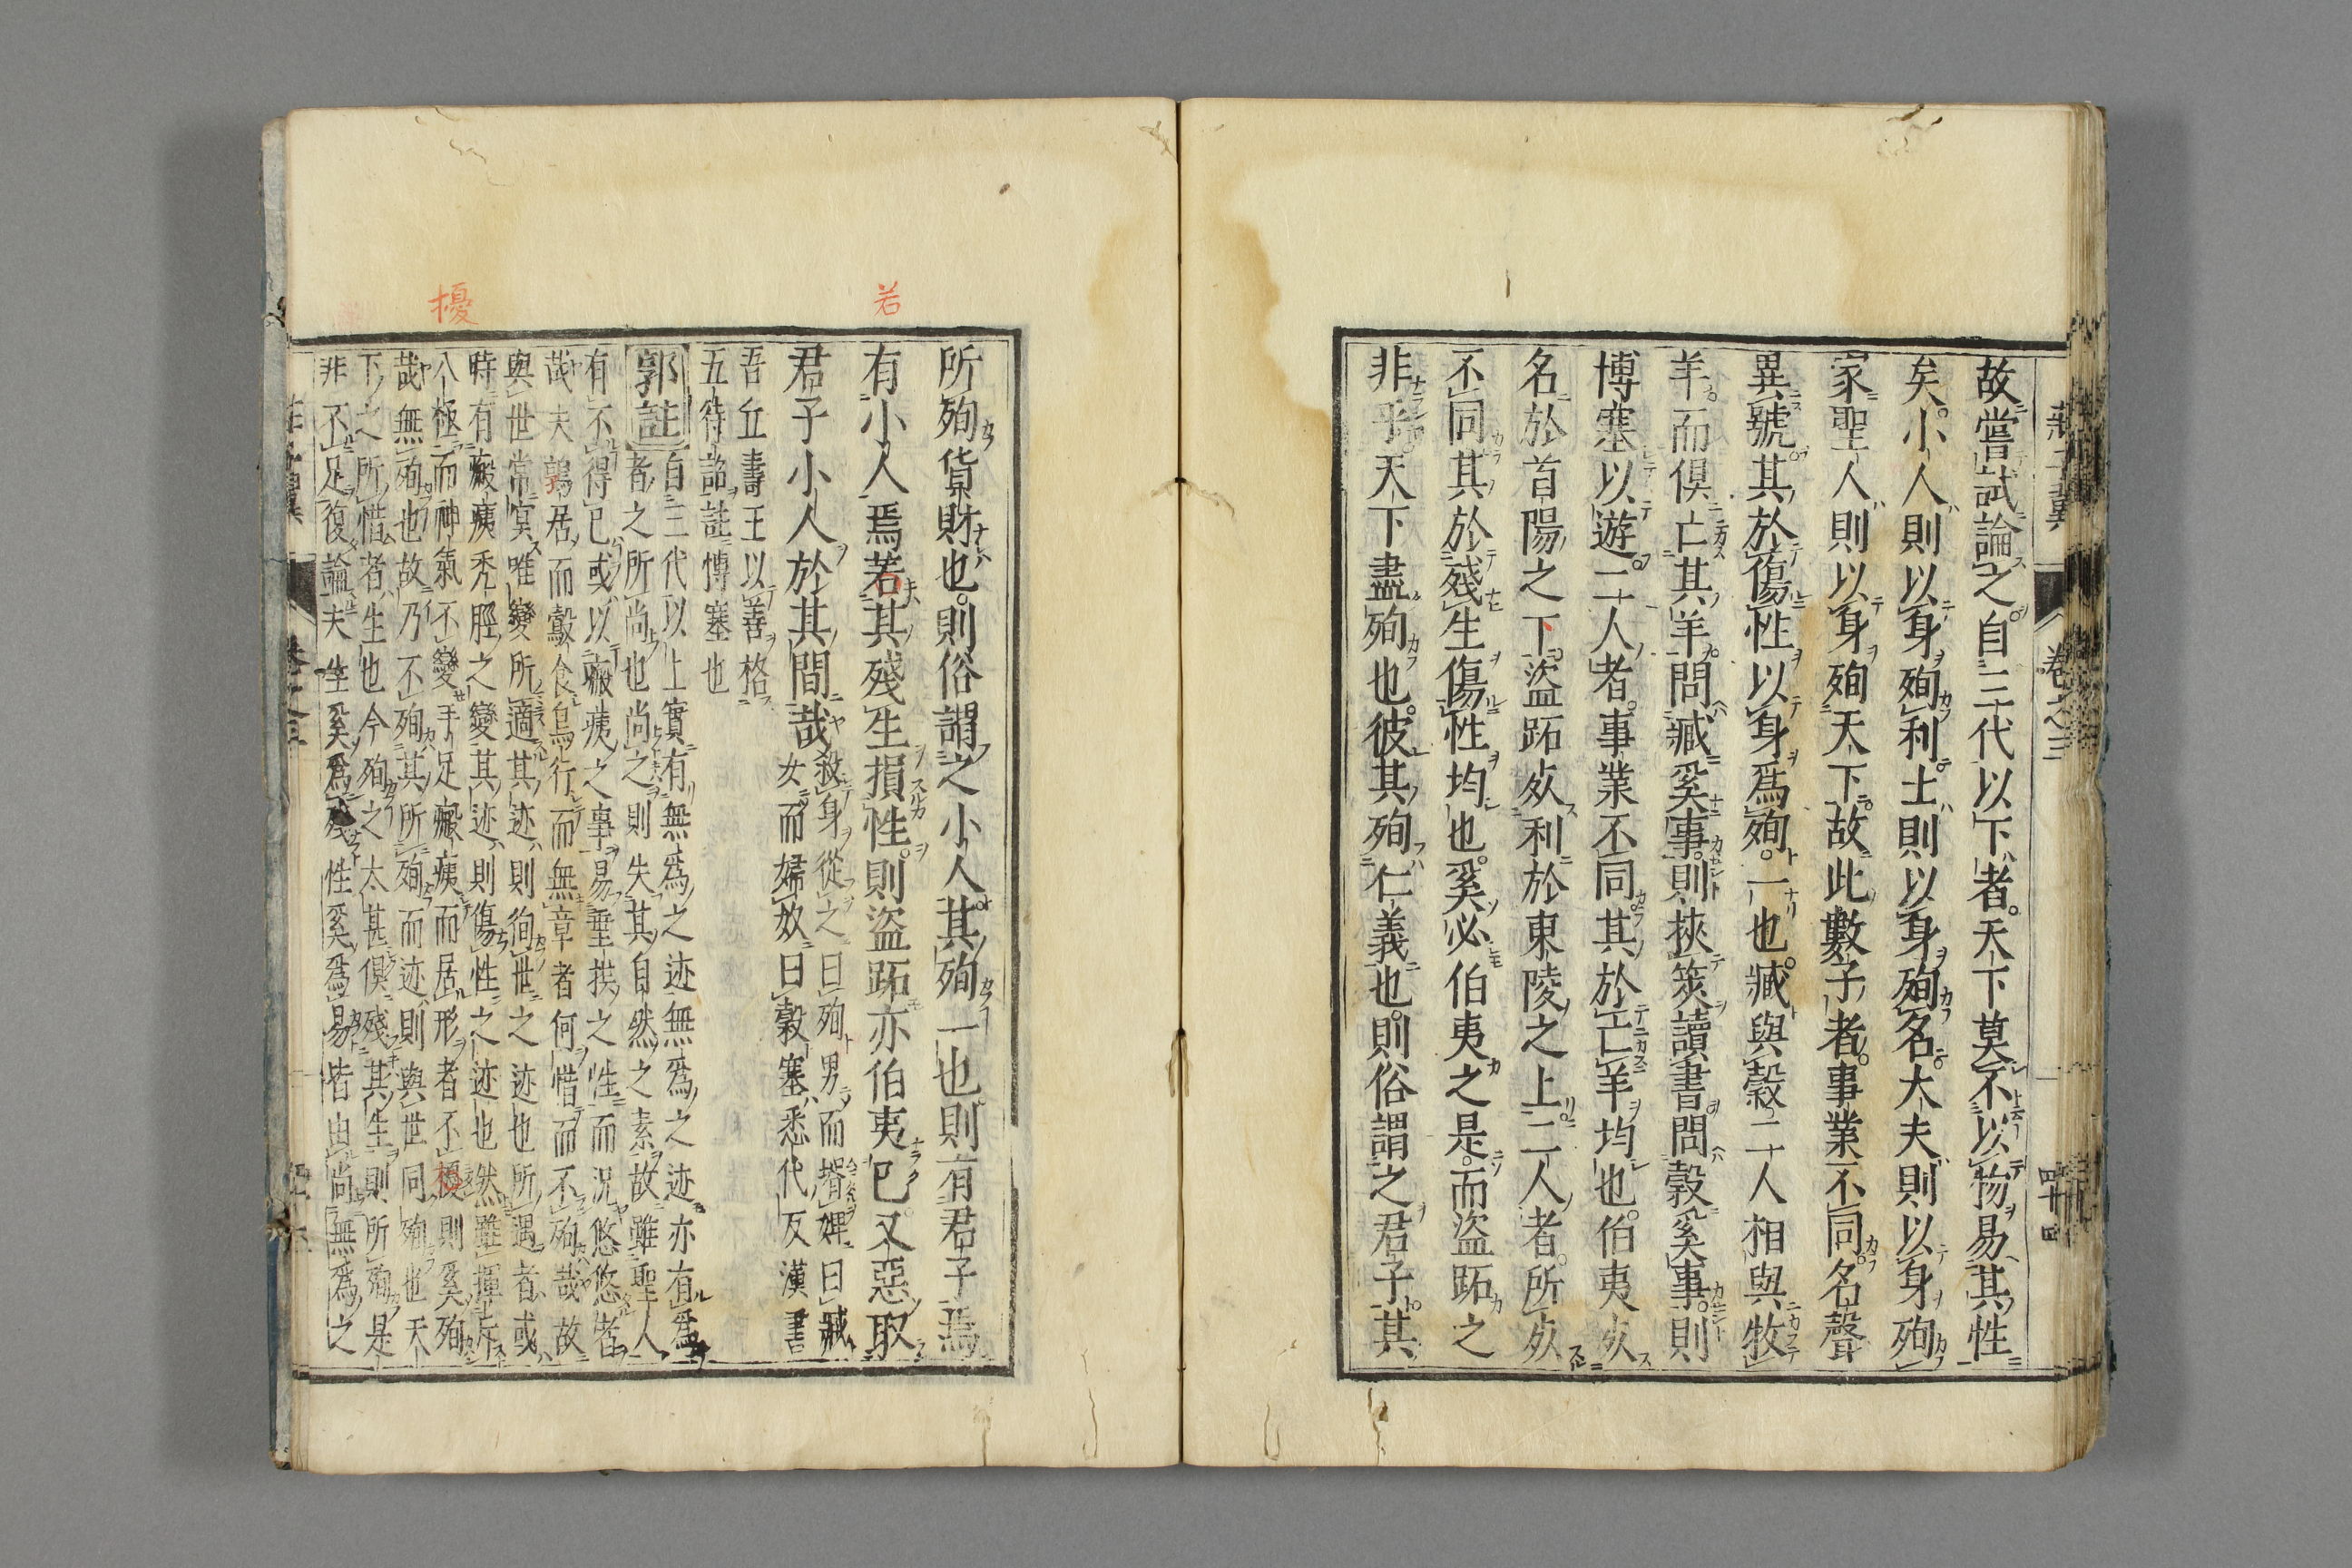 故嘗試論之自三代以下者天下莫不以物易其性
矣小人則以身殉利士則以身殉名大夫則以身殉
家聖人則以身殉天下故此數子者事業不同名聲
異號其於傷性以身爲殉一也臧與穀二人相與牧
羊而俱亡其羊問臧奚事則挾筴讀書問穀奚事則
博塞以遊二人者事業不同其於亡羊均也伯夷死
名於首陽之下盜跖死利於東陵之上二人者所死
不同其於殘生傷性均也奚必伯夷之是而盜跖之
非乎天下盡殉也彼其殉仁義也則俗謂之君子其
所殉貨財也則俗謂之小人其殉一也則有君子焉
有小人焉若其殘生損性則盜跖亦伯夷已又惡取
君子小人於其間哉
殺身從之曰殉男而壻婢曰臧
女而婦奴曰穀塞悉代反漢書
吾丘壽王以善格
五待詔註博塞也
郭註
自三代以上實有無爲之迹無爲之迹亦有爲
者之所尚也尚之則失其自然之素故雖聖人
有不得已或以瘢痍之事易垂拱之性而況悠悠者
哉夫鶉居而鷇食鳥行而無章者何惜而不殉哉故
與世常冥唯變所適其迹則徇世之迹也所遇者或
時有瘢痍禿脛之變其迹則傷性之迹也然雖揮斥
八極而神氣不變手足瘢痍而居形者不擾則奚殉
哉無殉也故乃不殉其所殉而迹則與世同殉也天
下之所惜者生也今殉之太甚俱殘其生則所殉是
非不足復論夫生奚爲殘性奚爲易皆由尚無爲之
若
擾
卷之三